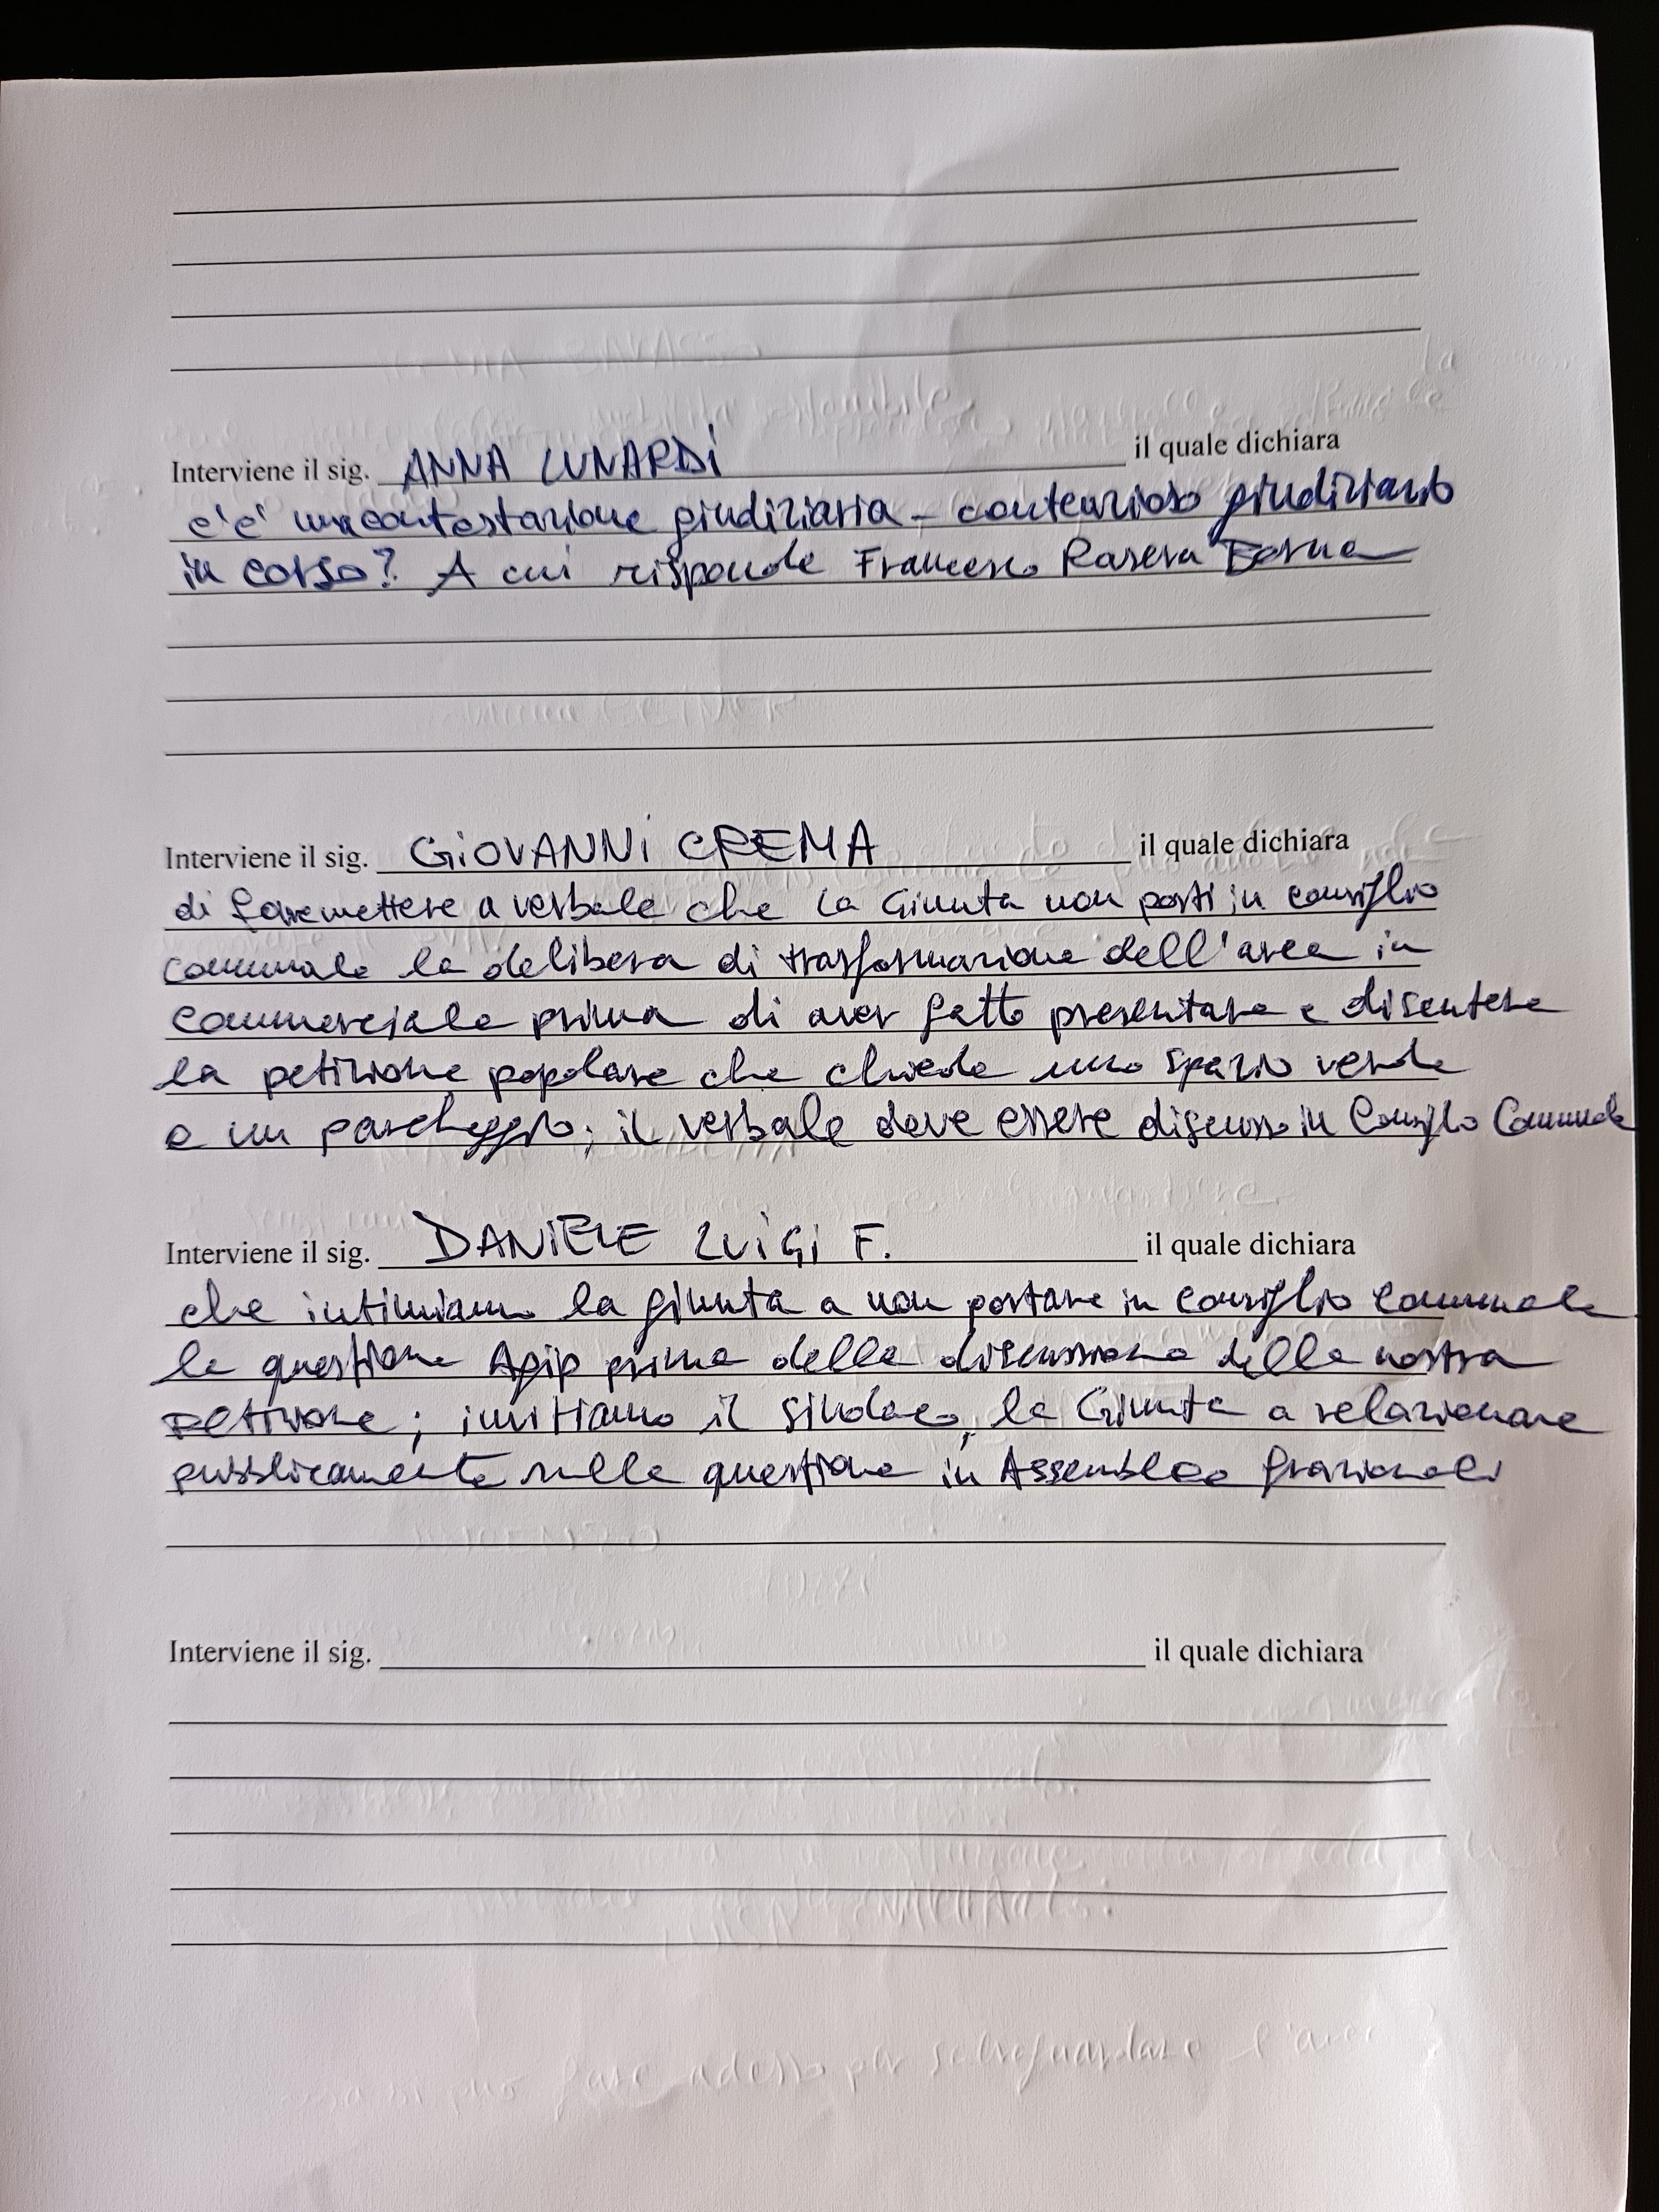 Interviene il sig. ANNA LUNARDI il quale dichiara
c'e' una contestazione giudiziaria - contenzioso giudiziario
in corso? A cui risponde Francesco Rasera Berna
Interviene il sig. GIOVANNI CREMA il quale dichiara
di far mettere a verbale che la Giunta non porti in consiglio
comunale la delibera di trasformazione dell'area in
commerciale prima di aver fatto presentare e discutere
la petizione popolare che chiede uno spazio verde
e un parcheggio; il verbale deve essere discusso in Consiglio Comunale
Interviene il sig. DANIELE LUIGI F. il quale dichiara
che intimiamo la giunta a non portare in consiglio comunale
la questione Agip prima della discussione della nostra
petizione; invitiamo il Sindaco, la Giunta a relazionare
pubblicamente sulla questione in Assemblee frazionali
Interviene il sig. il quale dichiara